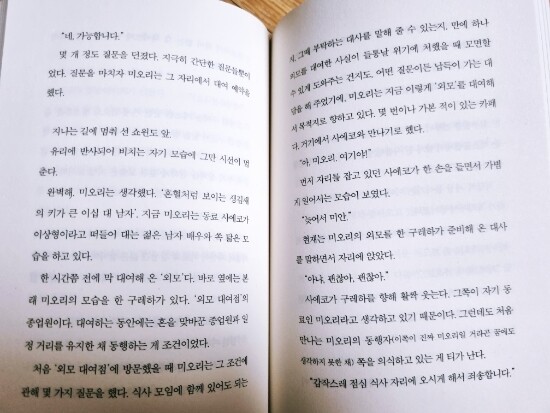 "네, 가능합니다."
몇 개 정도 질문을 던졌다. 지극히 간단한 질문들뿐이
었다. 질문을 마치자 미오리는 그 자리에서 대여 예약을
했다.
지나는 길에 멈춰 선 쇼윈도 앞.
유리에 반사되어 비치는 자기 모습에 그만 시선이 멈
춘다.
완벽해, 미오리는 생각했다. '혼혈처럼 보이는 생김새
의 키가 큰 이십 대 남자'. 지금 미오리는 동료 사에코가
이상형이라고 떠들어 대는 젊은 남자 배우와 쏙 닮은 모
습을 하고 있다.
한 시간쯤 전에 막 대여해 온 '외모'다. 바로 옆에는 본
래 미오리의 모습을 한 구레하가 있다. '외모 대여점'의
종업원이다. 대여하는 동안에는 혼을 맞바꾼 종업원과 일
정 거리를 유지한 채 동행하는 게 조건이었다.
처음 '외모 대여점'에 방문했을 때 미오리는 그 조건에
관해 몇 가지 질문을 했다. 식사 모임에 함께 있어도 되는
지, 그때 부탁하는 대사를 말해 줄 수 있는지, 만에 하나
외모를 대여한 사실이 들통날 위기에 처했을 때 모면할
수 있게 도와주는 건지도. 어떤 질문이든 남들이 가는 대
답을 해 주었기에, 미오리는 지금 이렇게 '외모'를 대여해
서 목적지로 향하고 있다. 몇 번이나 가본 적이 있는 카페
다. 거기에서 사에코와 만나기로 했다.
"아, 미오리. 여기야!"
먼저 자리를 잡고 있던 사에코가 한 손을 들면서 가볍
게 일어서는 모습이 보였다.
"늦어서 미안."
현재는 미오리의 외모를 한 구레하가 준비해 온 대사
를 말하면서 자리에 앉았다.
"아냐, 괜찮아, 괜찮아."
사에코가 구레하를 향해 활짝 웃는다. 그쪽이 자기 동
료인 미오리라고 생각하고 있기 때문이다. 그런데도 처음
만나는 미오리의 동행자(이쪽이 진짜 미오리일 거라곤 꿈에도
생각하지 못한 채) 쪽을 의식하고 있는 게 티가 난다.
"갑작스레 점심 식사 자리에 오시게 해서 죄송합니다."